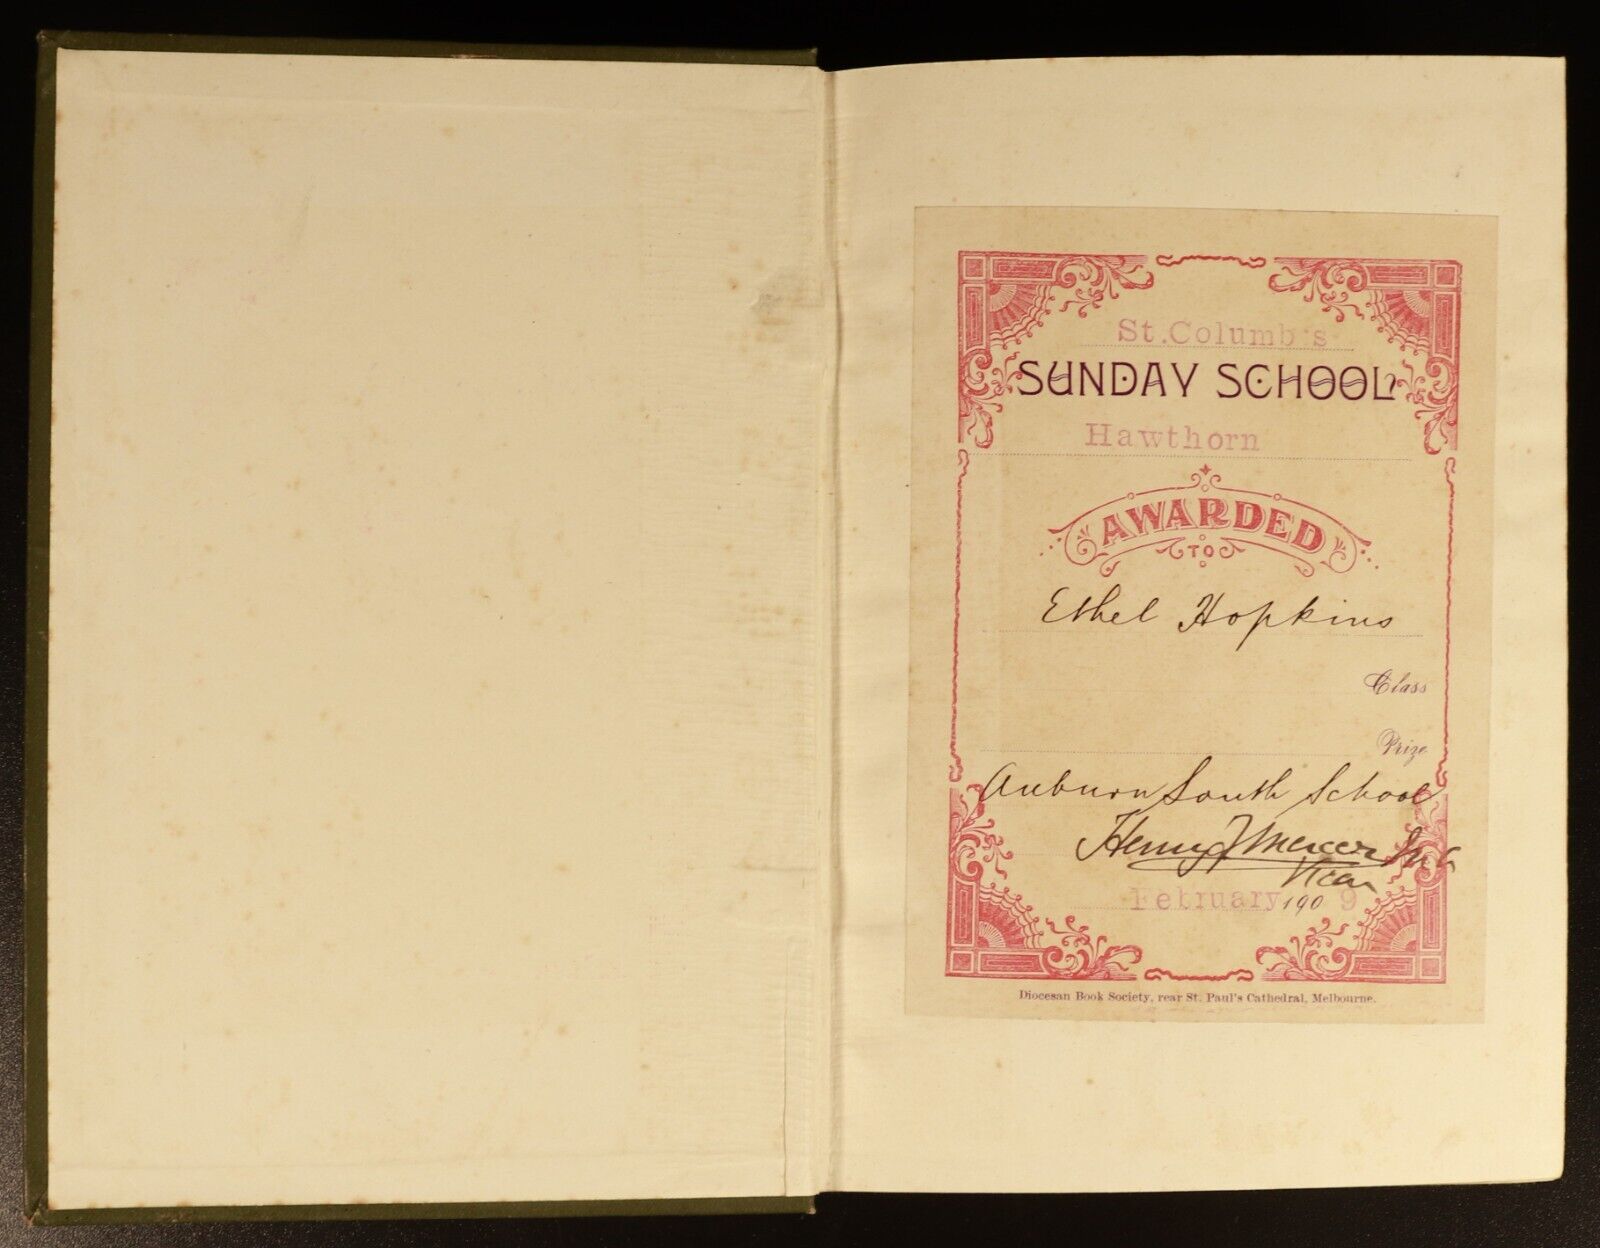 St. Columb's
SUNDAY SCHOOL
Hawthorn
AWARDED
TO
Ethel Hopkins
Class
Prize
Auburn South School
Henry F Mercer M.A
Vicar
February 1909
Diocesan Book Society, rear St. Paul's Cathedral, Melbourne.